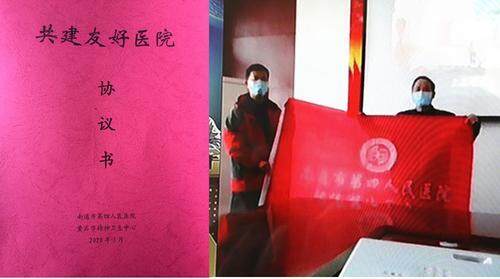 共建友好医院
协
议
书
南通市第四人民医院
黄石市精神卫生中心
2020年3月
南通市第四人民医院